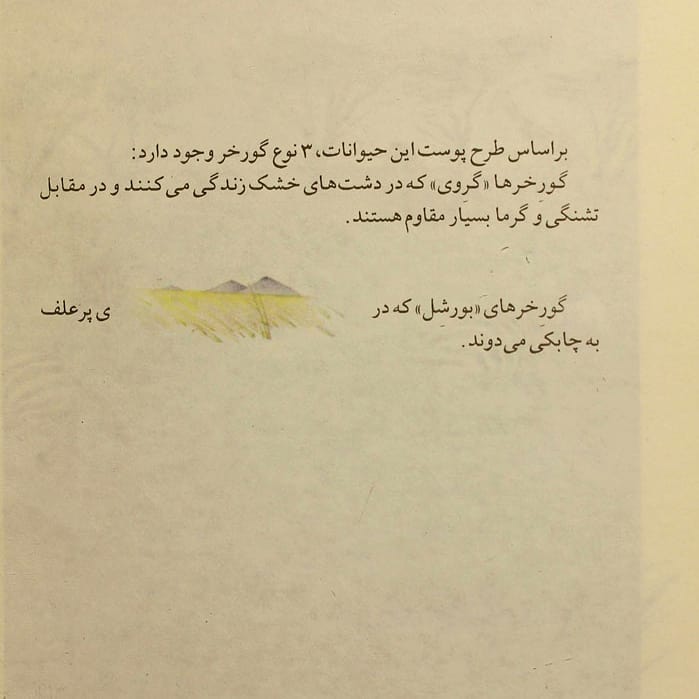 براساس طرح پوست این حیوانات، ۳ نوع گورخر وجود دارد:
گورخرها «گروی» که در دشت‌های خشک زندگی می‌کنند و در مقابل
تشنگی و گرما بسیار مقاوم هستند.
گورخرهای «بورشِل» که در ی پرعلف
به چابکی می‌دوند.